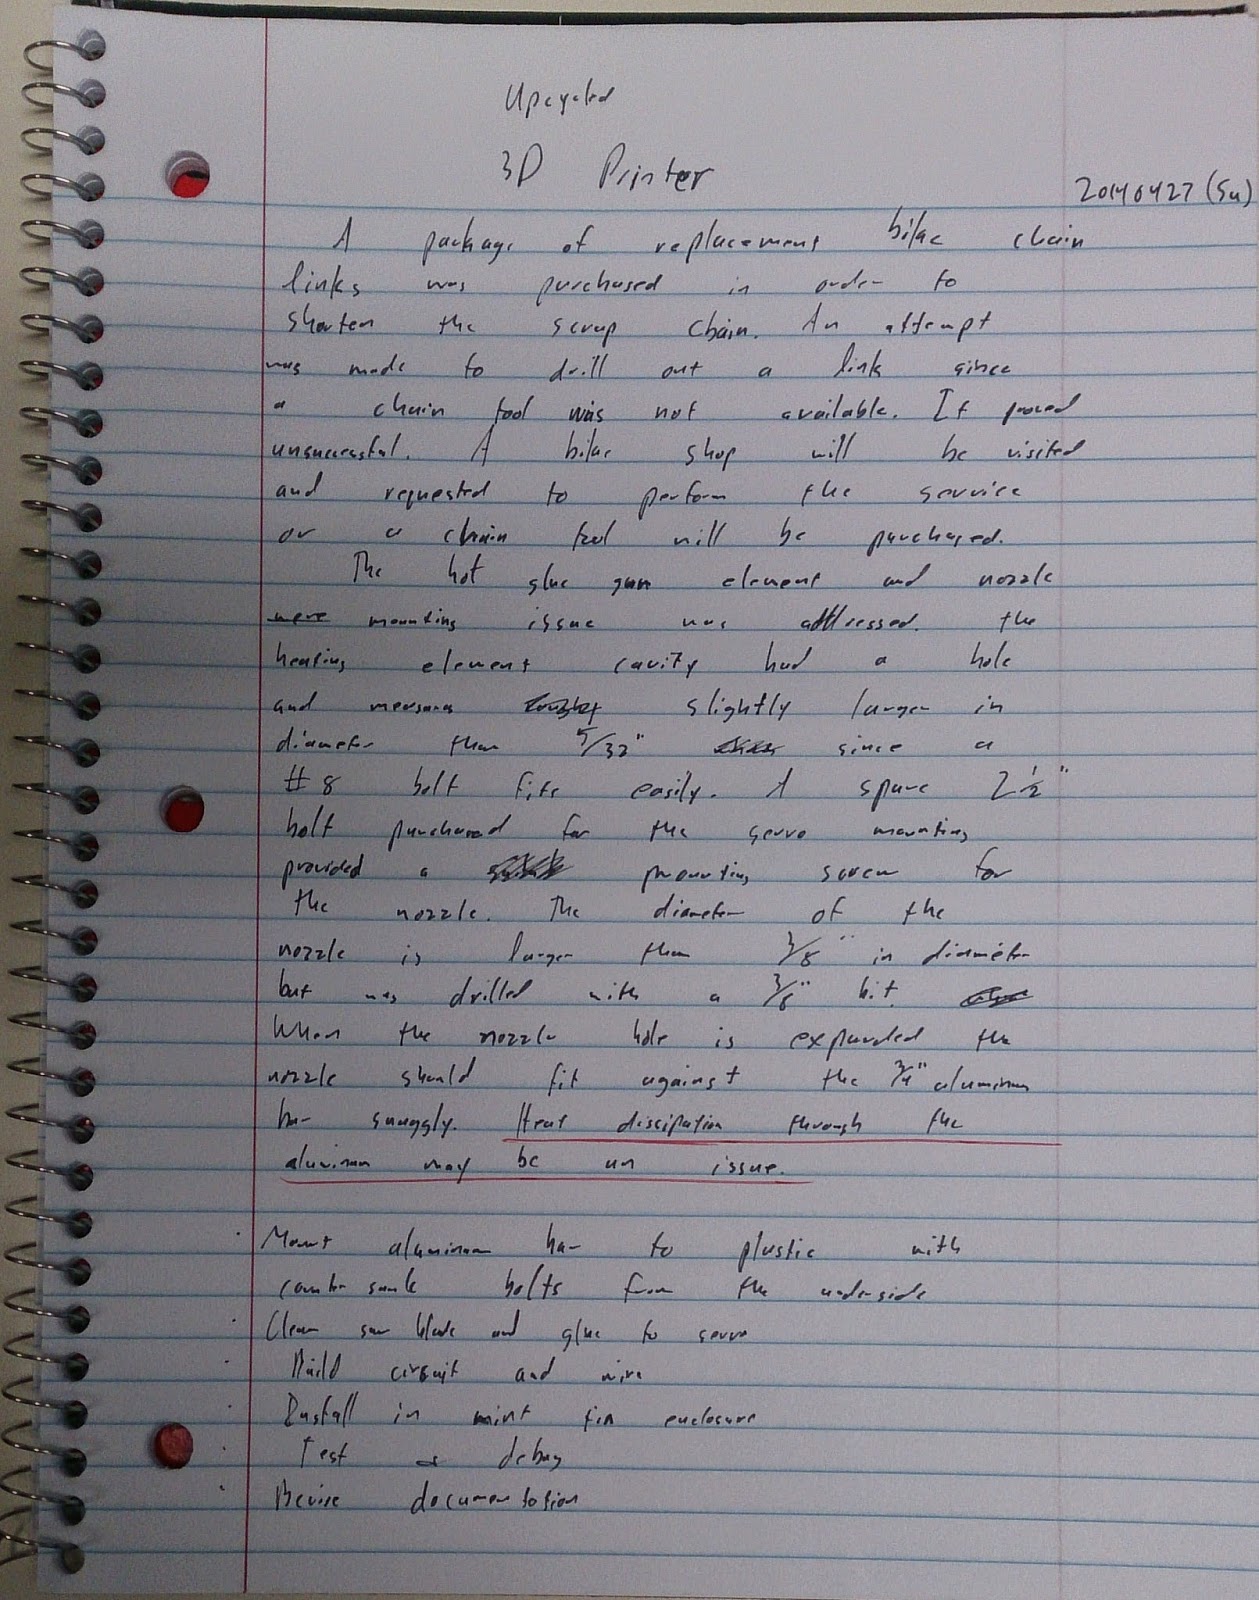 Upcycled
3D Printer
20140427 (Su)
A package of replacement bike chain
links was purchased in order to
shorten the scrap chain. An attempt
was made to drill out a link since
a chain tool was not available. It proved
unsuccessful. A bike shop will be visited
and requested to perform the service
or a chain tool will be purchased.
The hot glue gun element and nozzle
were mounting issue was addressed. the
heating element cavity had a hole
and measures slightly larger in
diameter than 5/32" since a
#8 bolt fits easily. A spare 2 1/2"
bolt purchased for the servo mounting
provided a mounting screw for
the nozzle. The diameter of the
nozzle is larger than 3/8" in diameter
but was drilled with a 3/8" bit.
When the nozzle hole is expanded the
nozzle should fit against the 3/4" aluminum
bar snuggly. Heat dissipation through the
aluminum may be an issue.
· Mount aluminum bar to plastic with
counter sunk bolts from the underside
· Clean saw blade and glue to servo
· Build circuit and wire
· Install in mint tin enclosure
· Test & debug
· Revise documentation